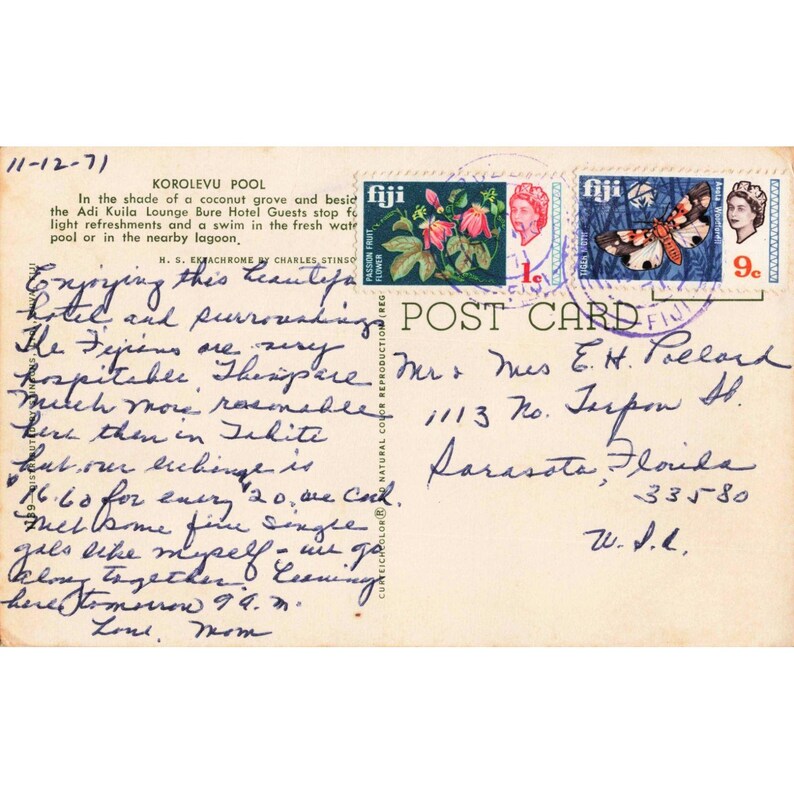 11-12-71
KOROLEVU POOL
In the shade of a coconut grove and besid
the Adi Kuila Lounge Bure Hotel Guests stop fo
light refreshments and a swim in the fresh wate
pool or in the nearby lagoon.
H. S. EKTACHROME BY CHARLES STINSO
Enjoying this beautiful
hotel and surroundings
The Fijiens are very
hospitable. Things are
much more resonable
here then in Tahite
but our exchange is
16.60 for every $20. we cash.
Met some fine single
gals like myself - we go
along together. Leaving
here tomorrow 9 A.M.
Love, Mom
fiji
PASSION FRUIT
FLOWER
1c
fiji
TIGER MOTH
9c
FIJI
POST CARD
CURTEICHCOLOR® NATURAL COLOR REPRODUCTION (REG
Mr & Mrs E. H. Pollard
1113 No. Tarpon St.
Sarasota, Florida
33580
U.S.A.